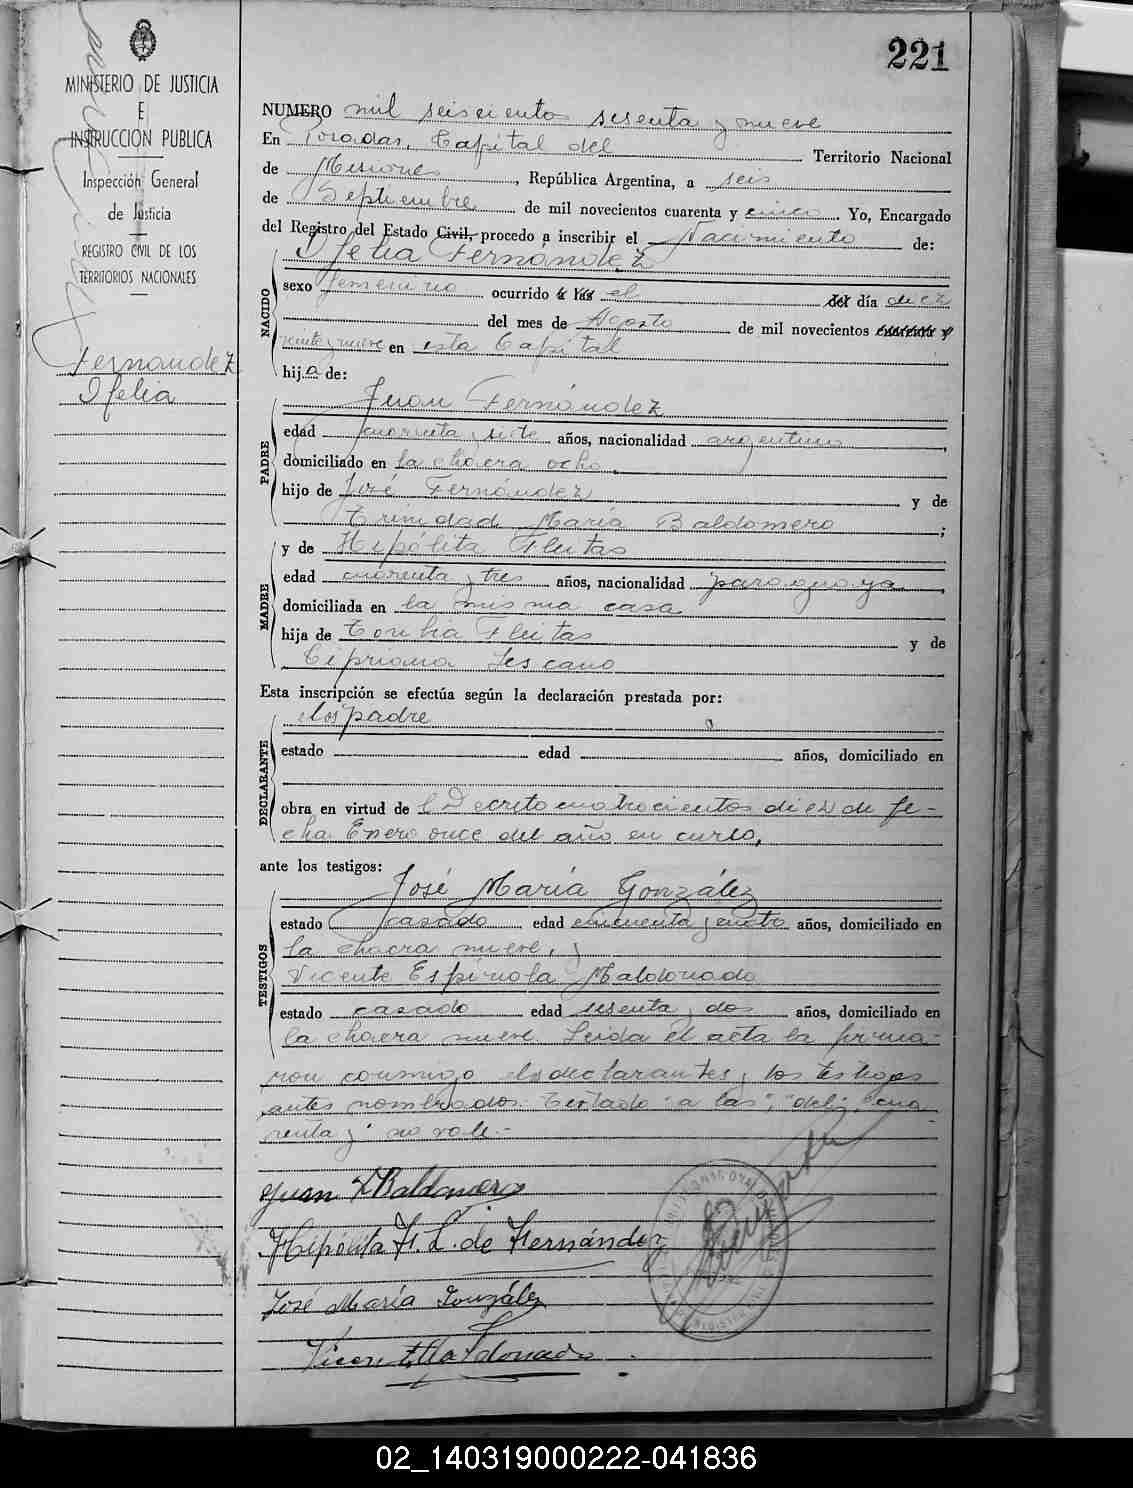 221
MINISTERIO DE JUSTICIA
E
INSTRUCCION PUBLICA
Inspección General
de Justicia
REGISTRO CIVIL DE LOS
TERRITORIOS NACIONALES
Fernandez
Ofelia
NUMERO mil seiscientos sesenta y nueve
En Posadas, Capital del Territorio Nacional
de Misiones, República Argentina, a seis
de Septiembre de mil novecientos cuarenta y cinco. Yo, Encargado
del Registro del Estado Civil, procedo a inscribir el Nacimiento de:
Ofelia Fernández
NACIDO
sexo femenino ocurrido a las el del día diez
del mes de Agosto de mil novecientos cuarenta y
veinte y nueve en esta Capital
hija de:
Juan Fernández
PADRE
edad cuarenta y siete años, nacionalidad argentino,
domiciliado en la chacra ocho.
hijo de José Fernández y de
Trinidad María Baldomero;
y de Hipólita Fleitas
MADRE
edad cuarenta y tres años, nacionalidad paraguaya,
domiciliada en la misma casa
hija de Toribia Fleitas y de
Cipriana Lescano
Esta inscripción se efectúa según la declaración prestada por:
los padre
DECLARANTE
estado edad años, domiciliado en
obra en virtud del Decreto cuatrocientos diez de fe-
cha Enero once del año en curso,
ante los testigos:
José María González
TESTIGOS
estado casado edad cincuenta y cuatro años, domiciliado en
la chacra nueve, y
Vicente Espínola Maldonado
estado casado edad sesenta y dos años, domiciliado en
la chacra nueve. Leida el acta la firma-
ron conmigo los declarantes y los testigos
antes nombrados. Testado "a las", "del", "cua
renta y" no vale.-
Juan F Baldomero
Hipolita F. L. de Fernández
José María González
Vicen E Maldonado.
02_140319000222-041836